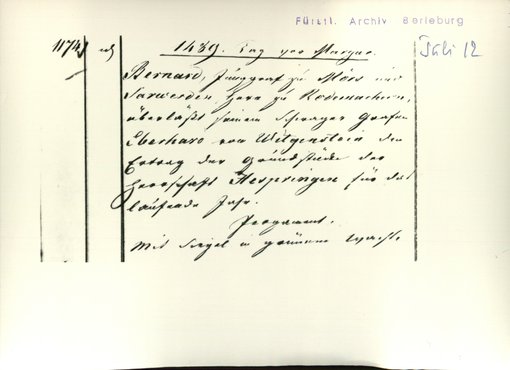 Fürstl. Archiv Berleburg
1174 1489. Tag vor Margar. Juli 12
Bernard, Junggraf zu Mörs und
Sarwerden Herr zu Rodemachern,
überläßt seinem Schwager Grafen
Eberhard von Witgenstein den
Ertrag der Grundstücke der
Herrschaft Hespringen für das
laufende Jahr.
Pergament.
Mit Siegel in grünem Wachs.